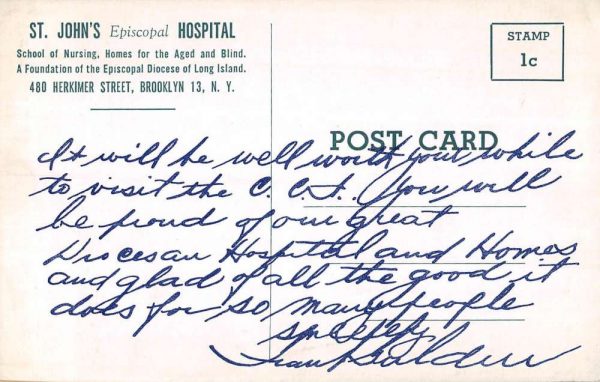 ST. JOHN'S Episcopal HOSPITAL
School of Nursing, Homes for the Aged and Blind.
A Foundation of the Episcopal Diocese of Long Island.
480 HERKIMER STREET, BROOKLYN 13, N. Y.
STAMP
1c
POST CARD
It will be well worth your while
to visit the C. C. I. You will
be proud of our great
Diocesan Hospital and Homes
and glad of all the good it
does for so many people
sincerely